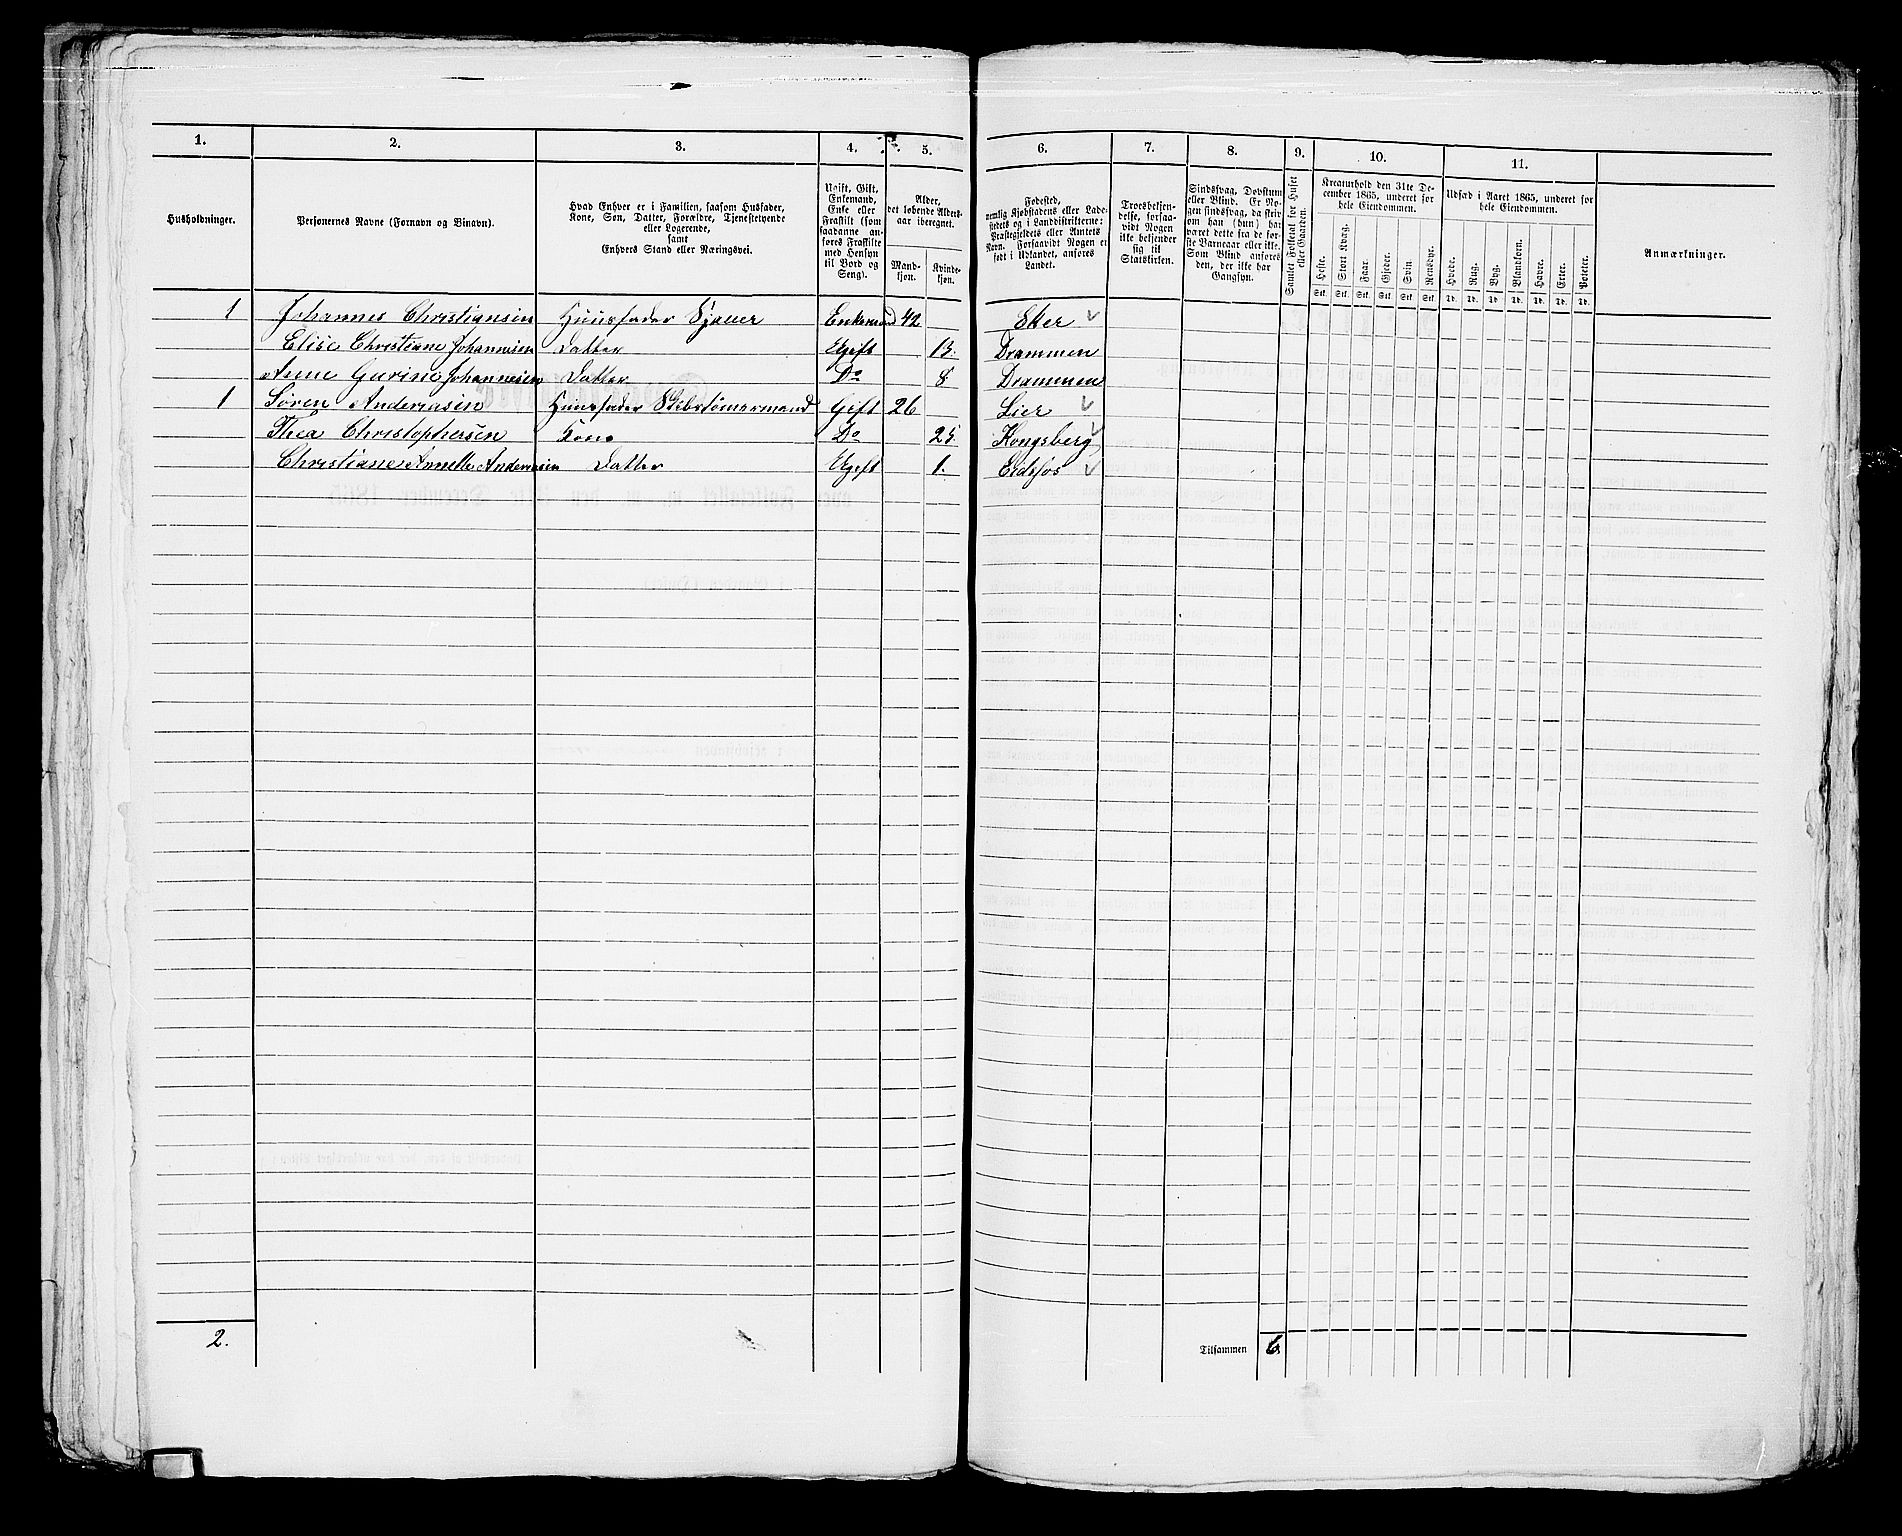 1. 2. 3. 4. 5. 6. 7. 8. 9. 10. 11.
Husholdninger.
Personernes Navne (Fornavn og Binavn).
Hvad Enhver er i Familien, saasom Husfader,
Kone, Søn, Datter, Forældre, Tjenestetyende
eller Logerende,
samt
Enhvers Stand eller Næringsvei.
Ugift, Gift,
Enkemand,
Enke eller
Fraskilt (som
saadanne an-
føres Fraskilte
med Hensyn
til Bord og
Seng).
Alder,
det løbende Alders-
aar iberegnet.
Mand-
kjøn.
Kvinde-
kjøn.
Fødested,
nemlig Kjøbstadens eller Lade-
stedets og i Landdistrikterne:
Præstegjeldets eller Amtets
Navn. Forsaavidt Nogen er
født i Udlandet, anføres
Landet.
Troesbekjen-
delse, forsaa-
vidt Nogen
ikke bekjender
sig til
Statskirken.
Sindssvag, Døvstum
eller Blind. Er No-
gen sindssvag, da skriv
om han (hun) har
været dette fra de før-
ste Barneaar eller ikke.
Som Blind anføres
den, der ikke har
Gangsyn.
Samlet Folketal for Huset
eller Gaarden.
Kreaturhold den 31te De-
cember 1865, underet for
hele Eiendommen.
Heste. Stort Kvæg. Faar. Gjeder. Svin. Rensdyr.
Stk. Stk. Stk. Stk. Stk. Stk.
Udsæd i Aaret 1865, underet for
hele Eiendommen.
Hvede. Rug. Byg. Blandkorn. Havre. Erter. Poteter.
Td. Td. Td. Td. Td. Td. Td.
Anmærkninger.
1 Johannes Christiansen Huusfader Sjauer Enkemand 42 Eker
Elise Christiane Johannesen Datter Ugift 13. Drammen
Anne Gurine Johannesen Datter Do 8 Drammen
1 Søren Andersen Huusfader Skibstømermand Gift 26 Lier
Thea Christophersen Kone Do 25 Kongsberg
Christiane Annette Andersen Datter Ugift 1. Eidsfos
2. Tilsammen 6.